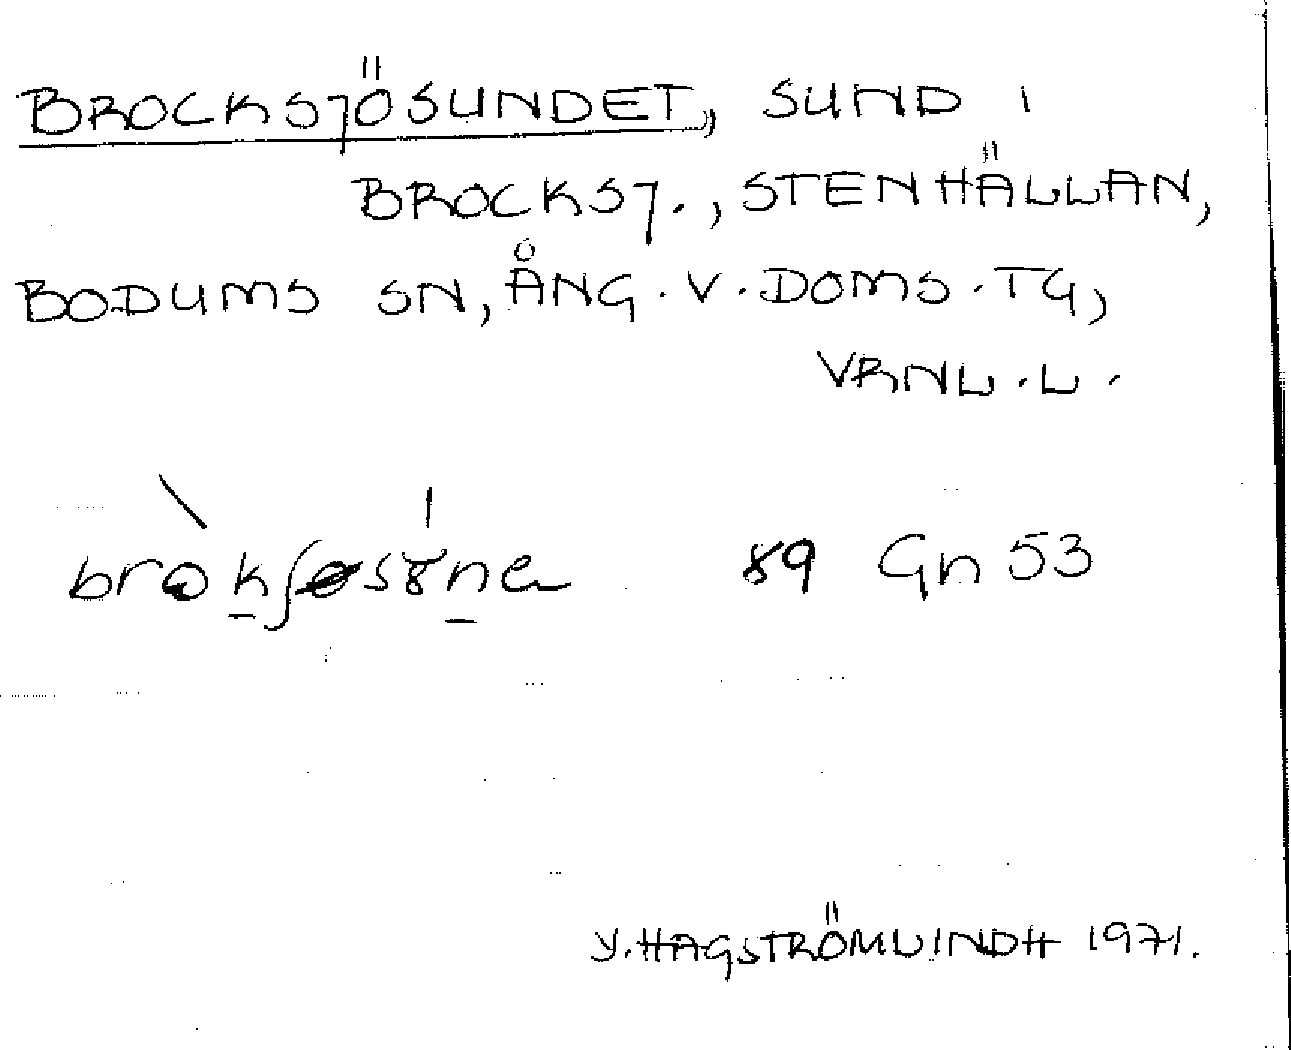 BROCKSJÖSUNDET, SUND I
BROCKSJ., STENHÄLLAN,
BODUMS SN, ÅNG. V. DOMS. TG,
VRNL. L.
89 Gn 53
Y. HAGSTRÖMLINDH 1971.